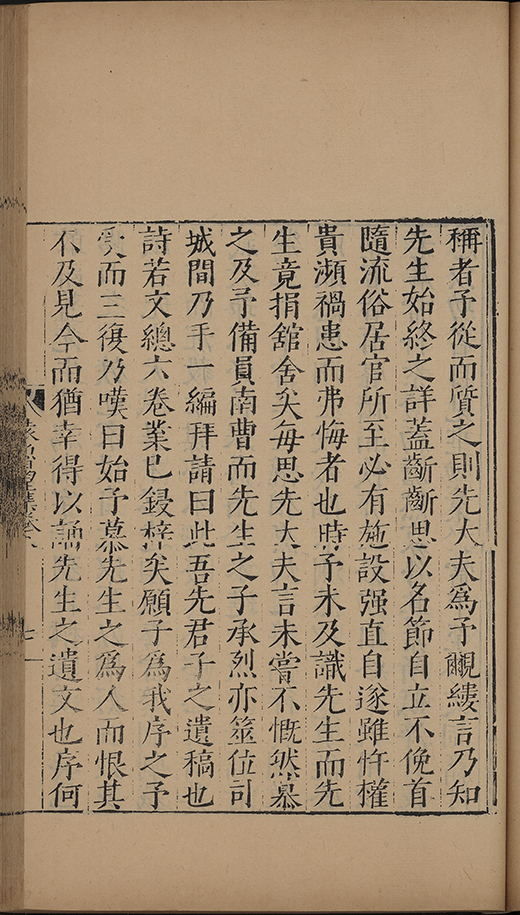 稱者予從而質之則先大夫爲予覼縷言乃知
先生始終之詳蓋齗齗思以名節自立不俛首
隨流俗居官所至必有施設强直自遂雖忤權
貴瀕禍患而弗悔者也時予未及識先生而先
生竟捐舘舍矣每思先大夫言未嘗不慨然慕
之及予備員南曹而先生之子承烈亦筮位司
城間乃手一編拜請曰此吾先君子之遺稿也
詩若文總六卷業已鋟梓矣願子爲我序之予
受而三復乃嘆曰始予慕先生之爲人而恨其
不及見今而猶幸得以誦先生之遺文也序何